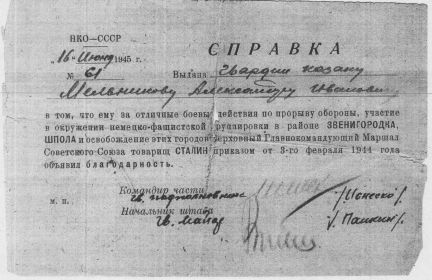 НКО—СССР
СПРАВКА
"16" Июня 1945 г.
№ 61
Выдана Гвардии казаку
Мельникову Александру Ивановичу
в том, что ему за отличные боевые действия по прорыву обороны, участие
в окружении немецко-фашистской группировки в районе ЗВЕНИГОРОДКА,
ШПОЛА и освобождение этих городов Верховный Главнокомандующий Маршал
Советского Союза товарищ СТАЛИН приказом от 3-го февраля 1944 года
объявил благодарность.
Командир части
гв. подполковник
м. п.
Начальник штаба
гв. майор
/Пашкин/